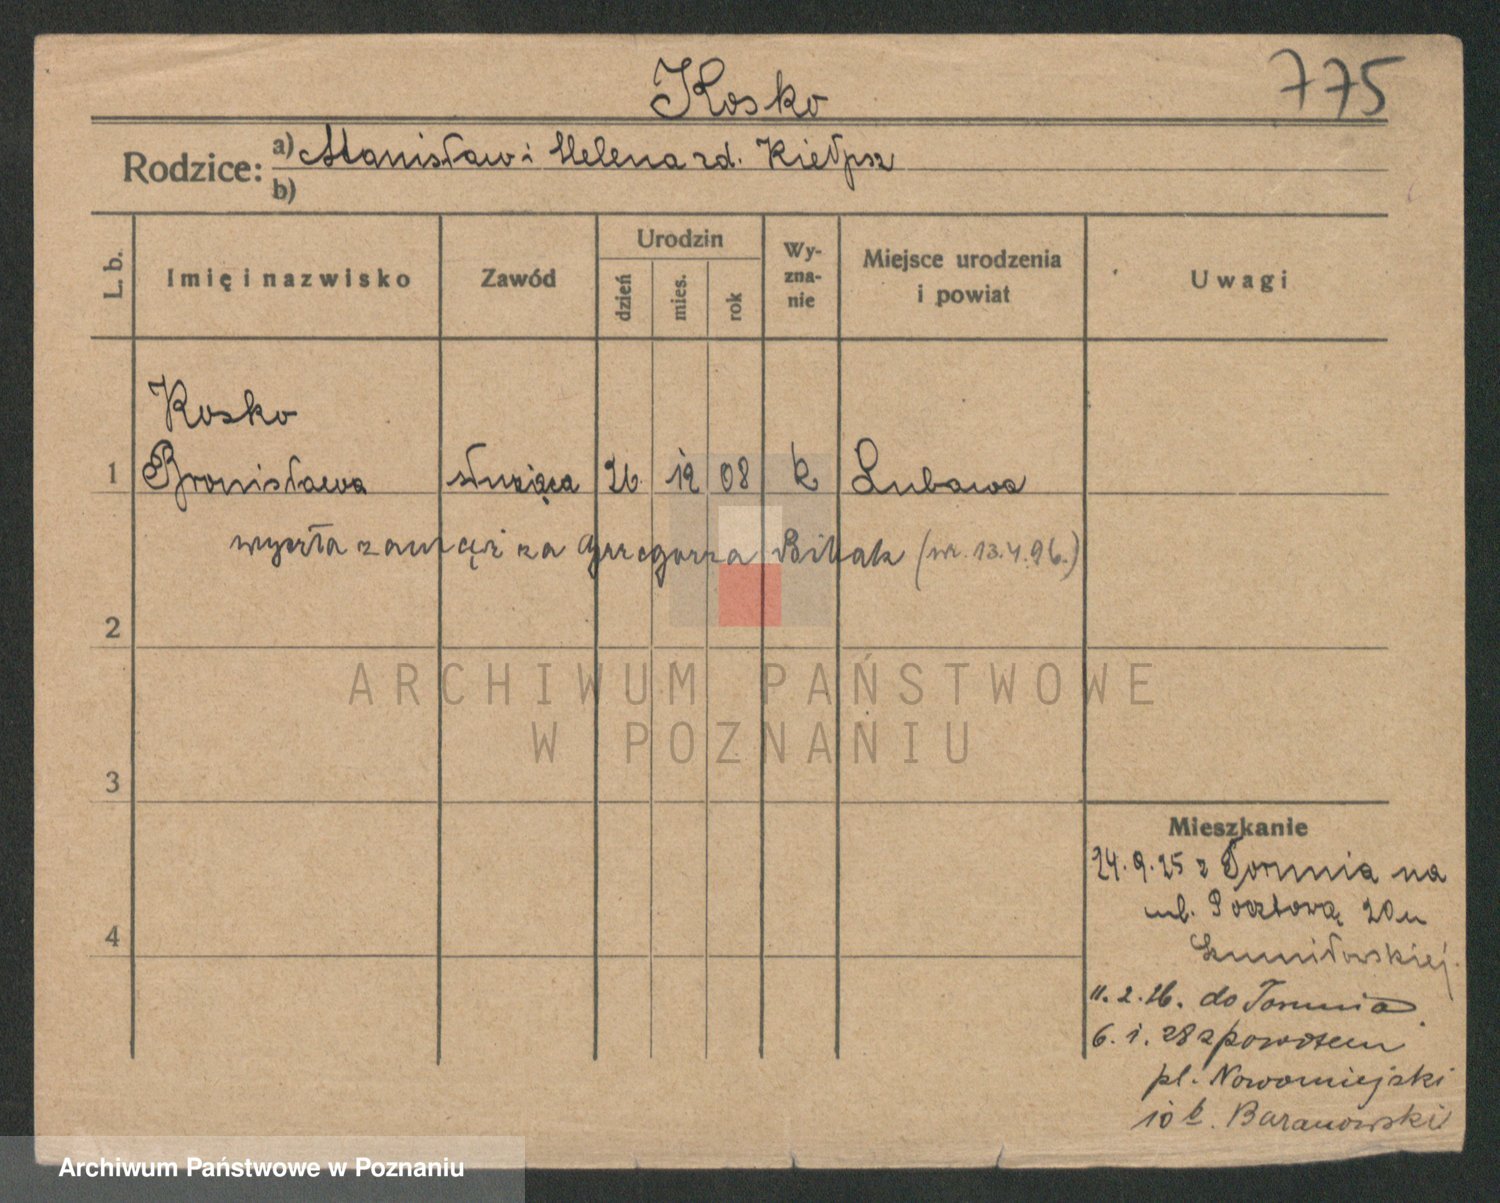 775
Kosko
Rodzice: a) Stanisław i Helena zd. Kiełpsz
b)
L. b.
Imię i nazwisko
Zawód
Urodzin
dzień
mies.
rok
Wy-
zna-
nie
Miejsce urodzenia
i powiat
Uwagi
Kosko
1 Bronisława służąca 26 12 08 k Lubawa
wyszła zamąż za Grzegorza Bibak (ur. 13.4.96.)
2
3
4
ARCHIWUM PAŃSTWOWE
W POZNANIU
Mieszkanie
24.9.25 z Torunia na
ul. Pocztową 20 u
Szumiłowskiej.
11.2.26. do Torunia
6.1.28 z powrotem
pl. Nowomiejski
10 b. Baranowski
Archiwum Państwowe w Poznaniu